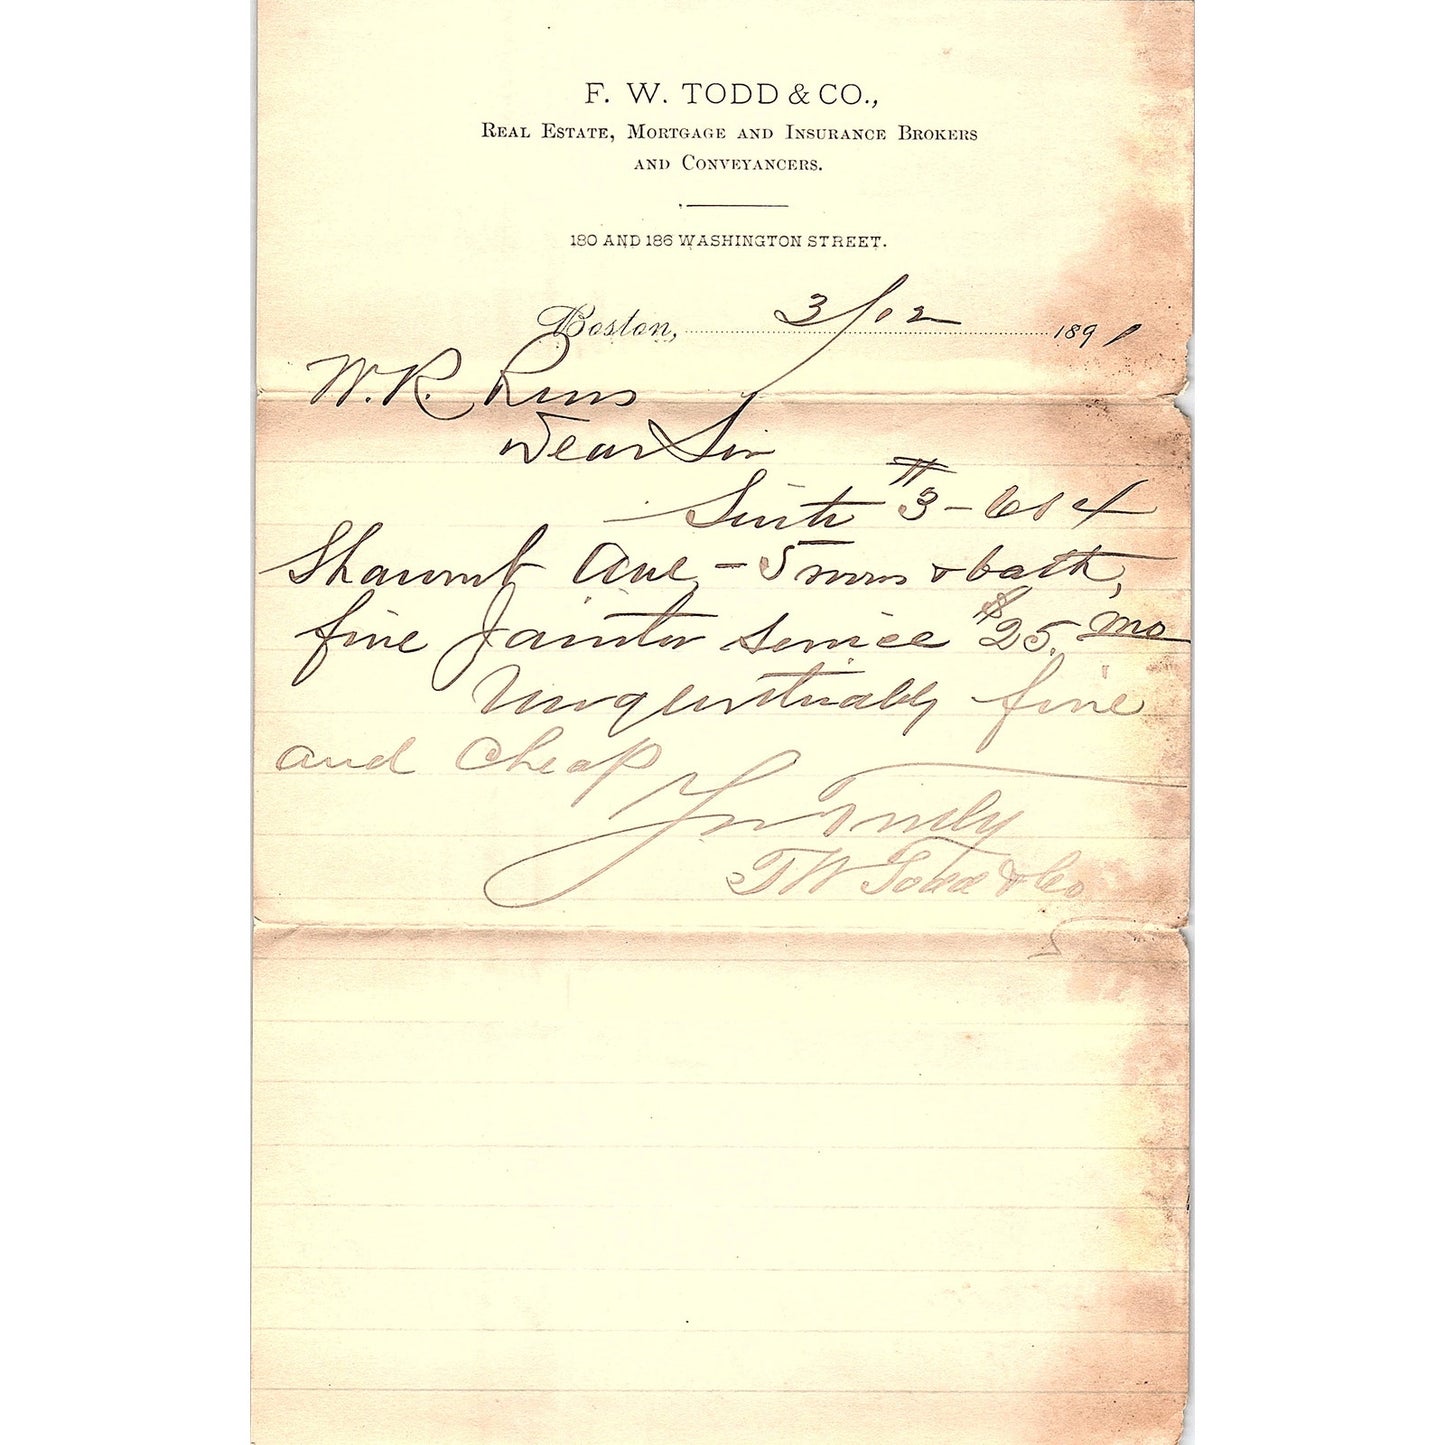 F. W. TODD & CO.,
REAL ESTATE, MORTGAGE AND INSURANCE BROKERS
AND CONVEYANCERS.
180 AND 186 WASHINGTON STREET.
Boston, 3/02 1891
W. R.
Dear Sir
Suite #3 -
Shawmut Ave, - 5 rooms & bath,
fine Janitor service $25. mo
Unquestionably fine
and cheap
Yrs Truly
F W Todd & Co